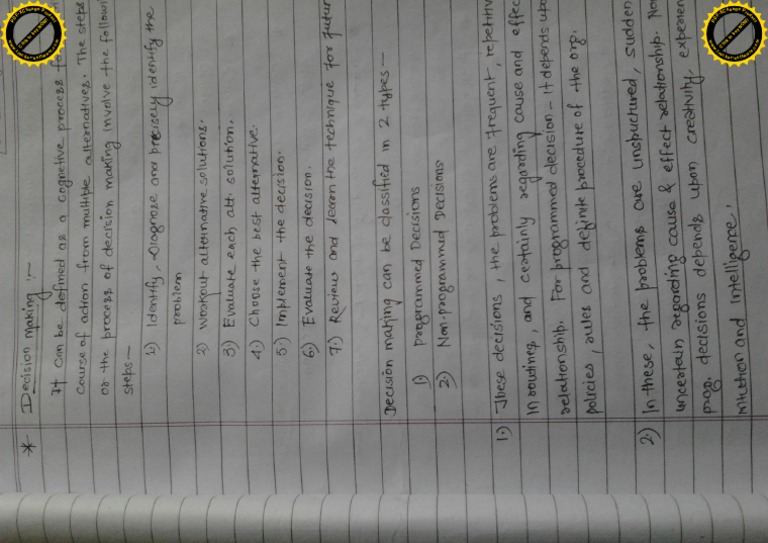 * Decision making :-
It can be defined as a cognitive process
course of action from multiple alternatives. The steps
or the process of decision making involve the followi
steps -
1) Identify, Diagnose and precisely identify the
problem
2) Workout alternative solutions.
3) Evaluate each alt. solution.
4) Choose the best alternative.
5) Implement the decision.
6) Evaluate the decision.
7) Review and learn the technique for futur
Decision making can be classified in 2 types -
1) Programmed Decisions
2) Non-programmed Decisions
1) These decisions, the problems are frequent, repetitiv
in routines, and certainly regarding cause and effec
relationship. For programmed decision - it depends upo
policies, rules and definite procedure of the org.
2) In these, the problems are unstructured, sudden
uncertain regarding cause & effect relationship. Non
prog. decisions depends upon creativity, experien
intution and intelligence.